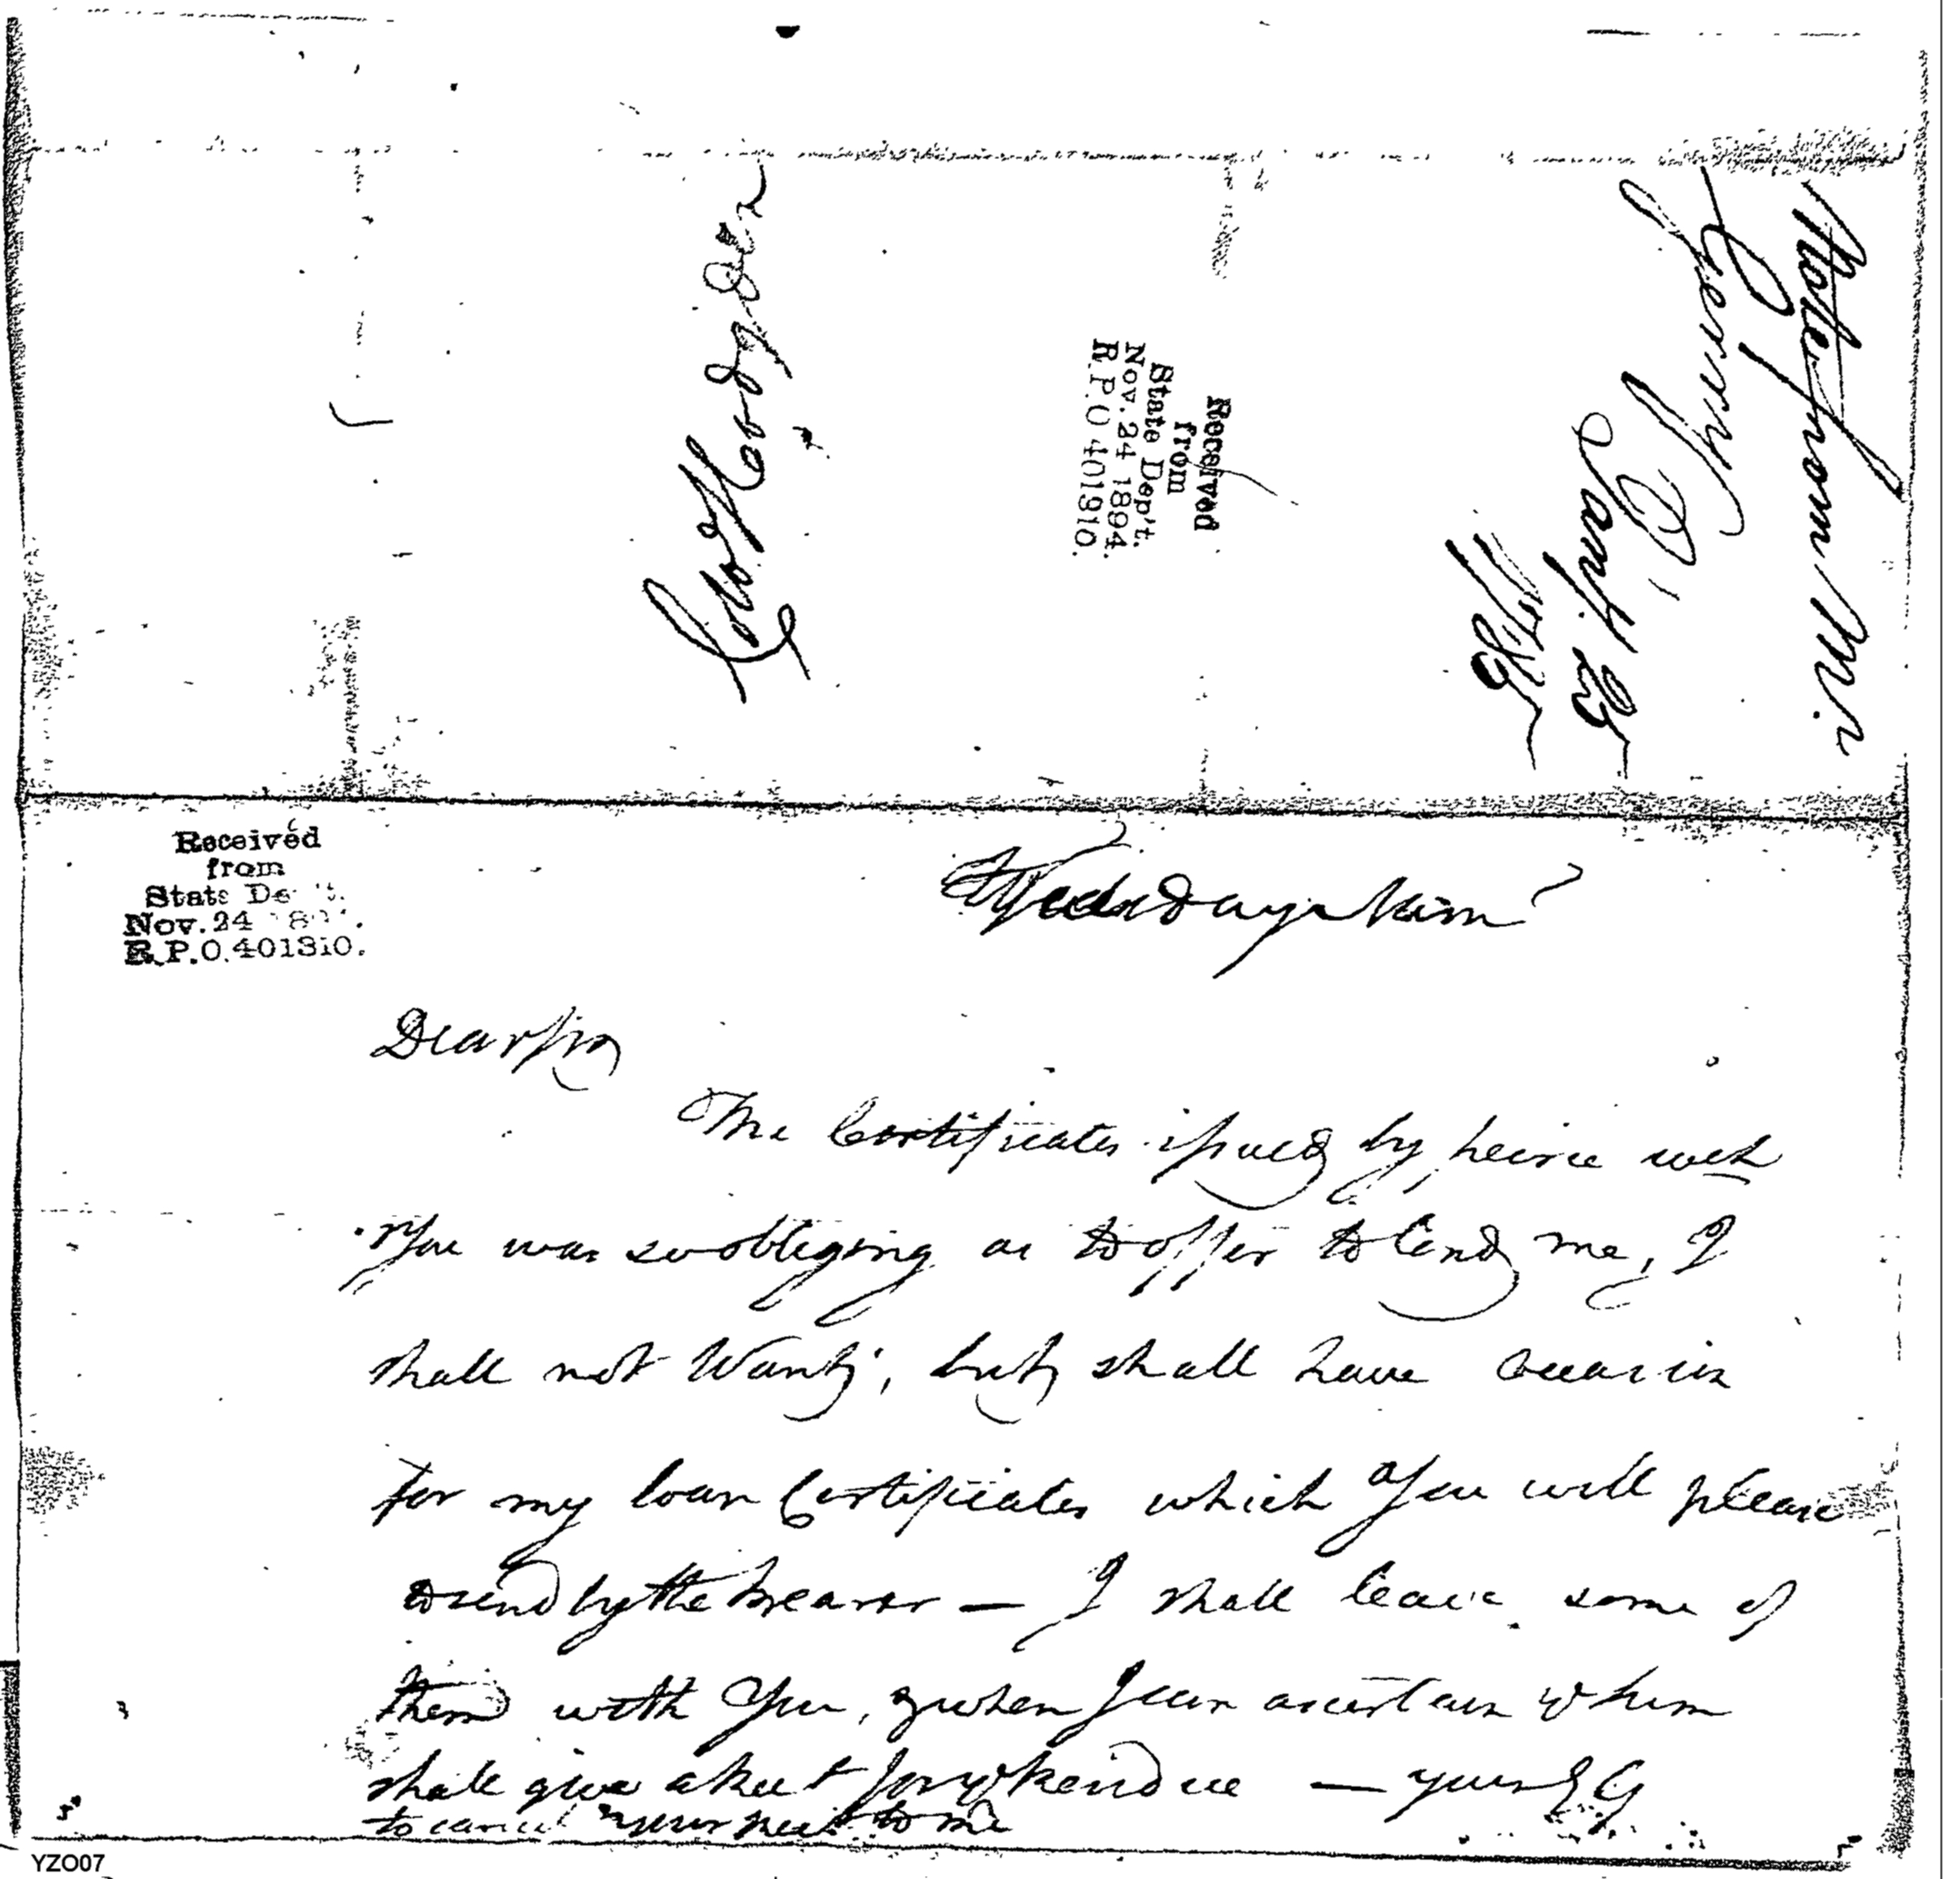 Note from Mr
Gerry
Jany. 25
Geo Hodgden
Received
from
State Dep't.
Nov. 24 1894.
R.P.O 401910.
Received
from
State De
Nov. 24
R.P.O. 401310.
Wednesday
Dear Sir
The Certificates issued by
You was so obliging as to offer to lend me, I
shall not Want, but shall have occasion
for my loan Certificates which You will please
to send by the bearer — I shall leave some of
them with You, & when I can ascertain whom
shall give a — yours EG
to cancel your to me
YZO07